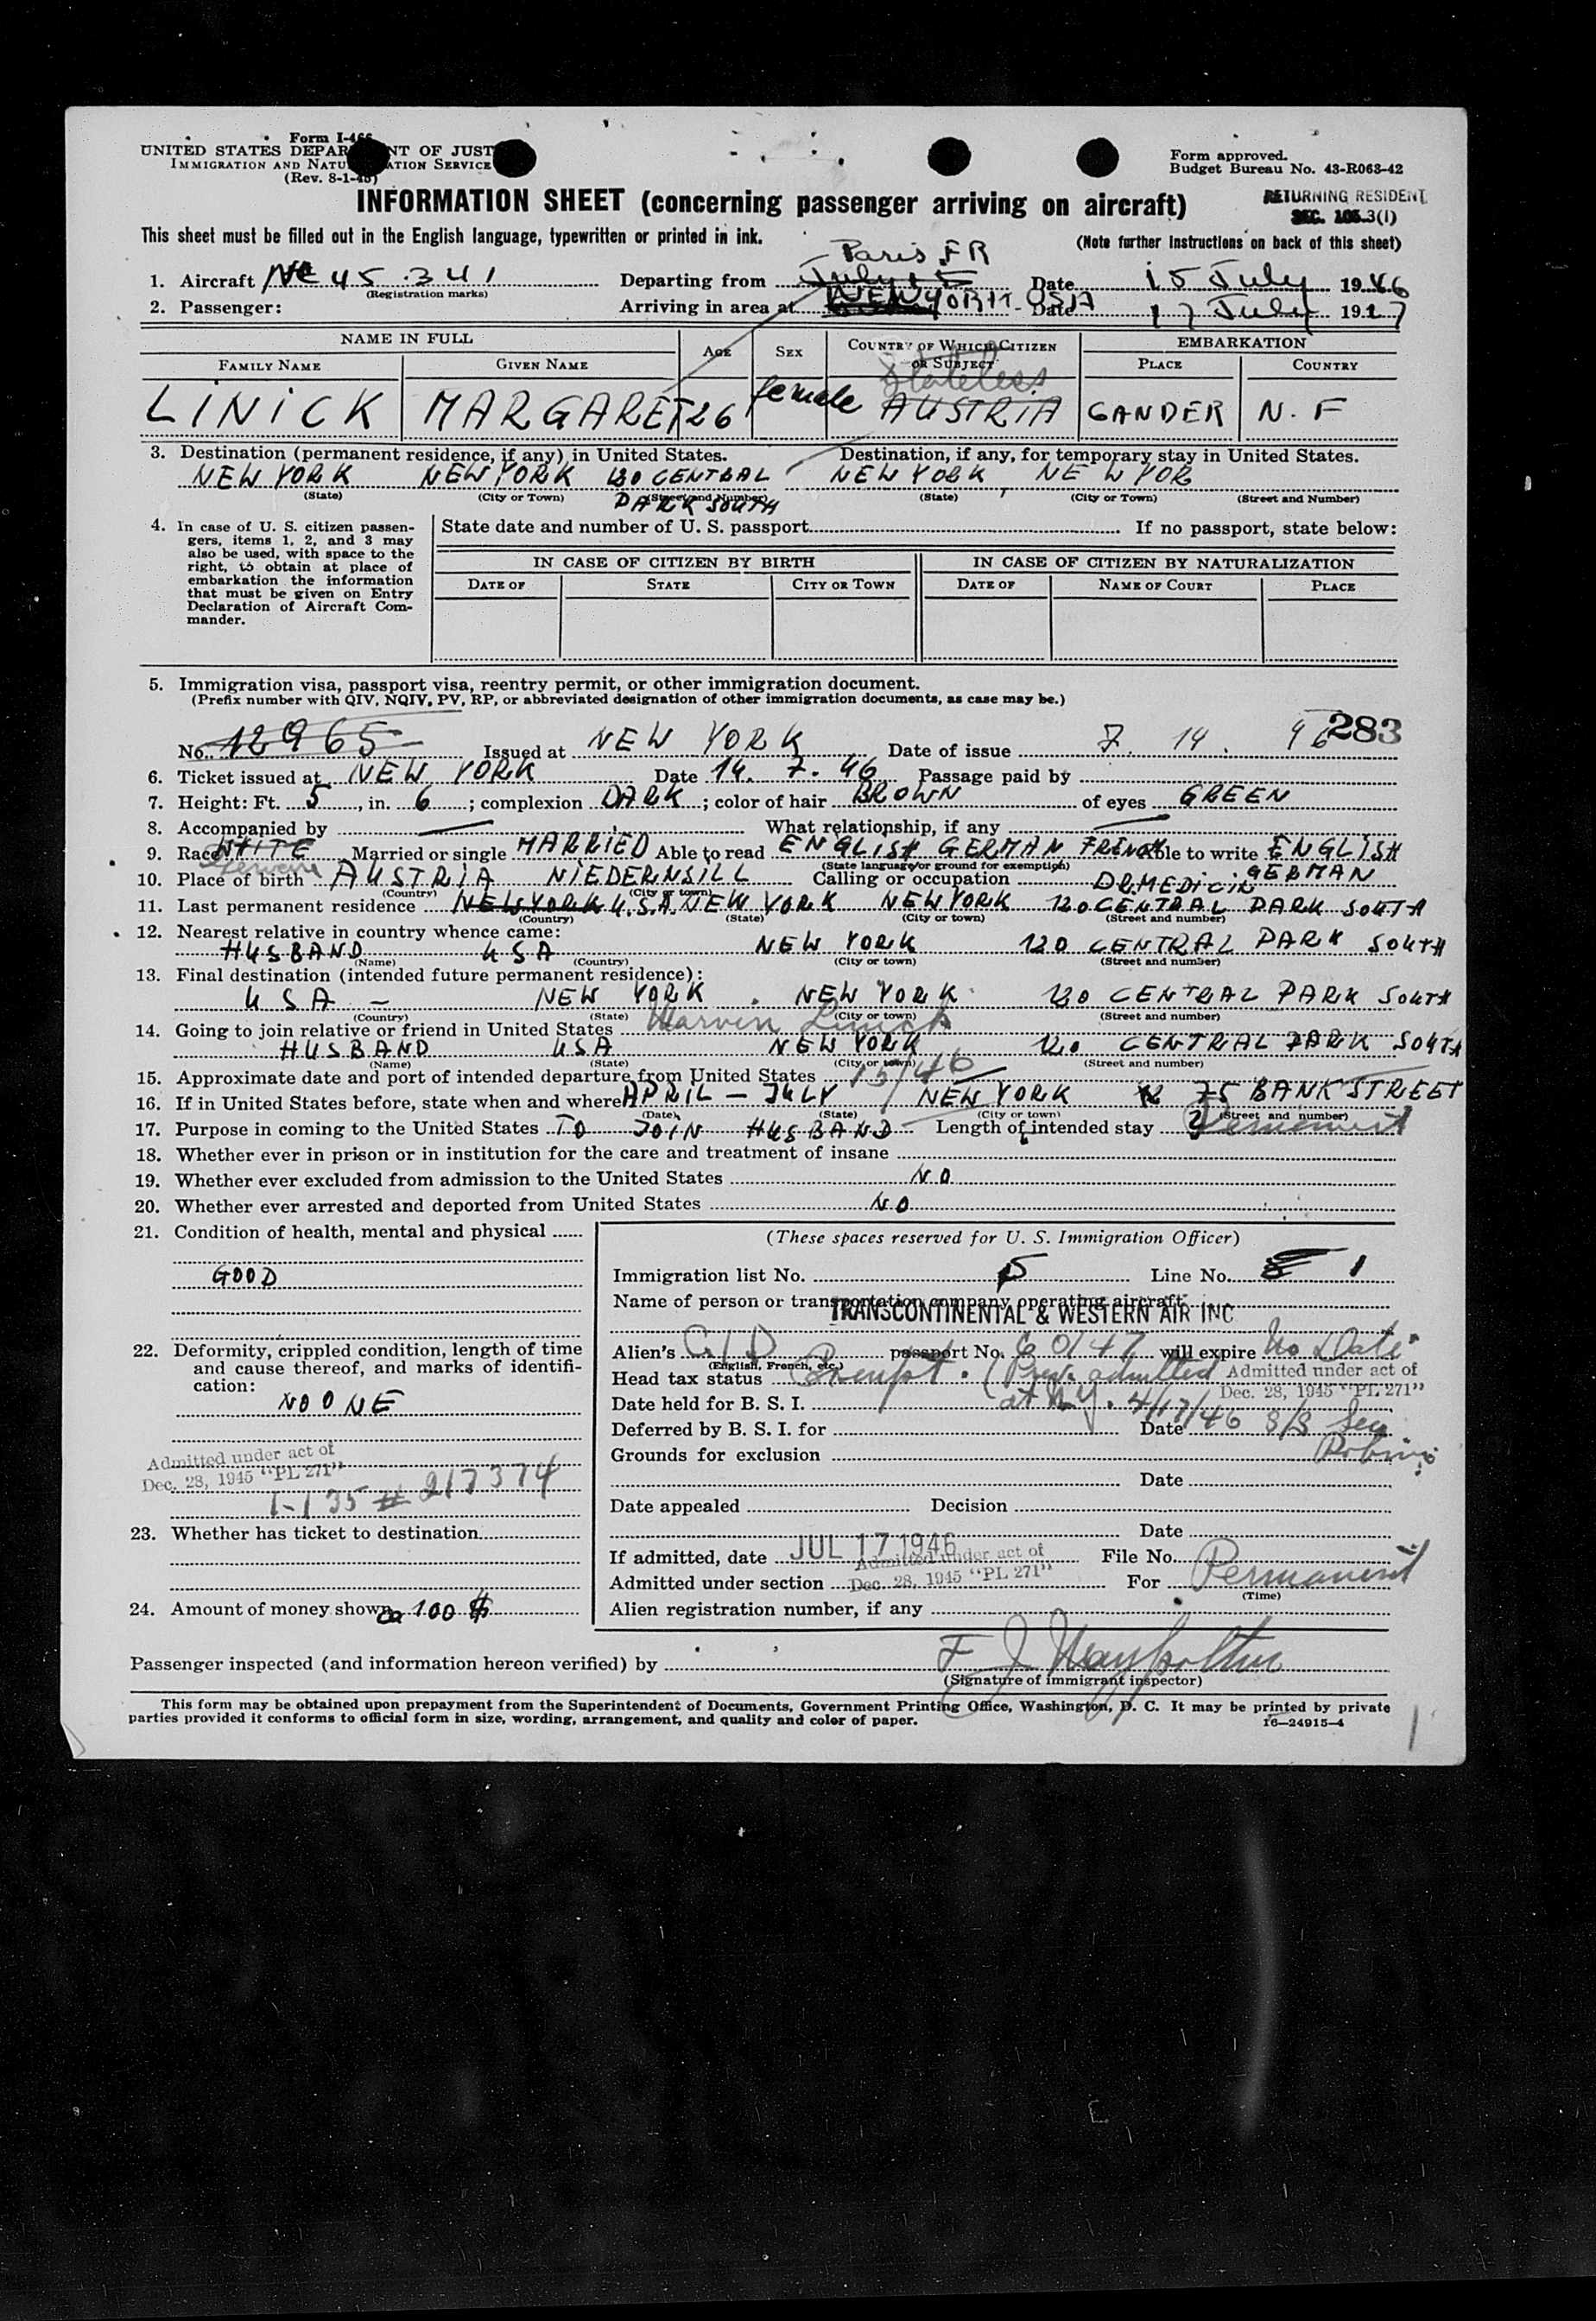 Form I-466
UNITED STATES DEPARTMENT OF JUSTICE
IMMIGRATION AND NATURALIZATION SERVICE
(Rev. 8-1-45)
Form approved.
Budget Bureau No. 43-R063-42
INFORMATION SHEET (concerning passenger arriving on aircraft)
RETURNING RESIDENT
SEC. 3(1)
This sheet must be filled out in the English language, typewritten or printed in ink.
(Note further instructions on back of this sheet)
Paris FR
1. Aircraft NC 45 341 Departing from July 15 Date 15 July 1946
(Registration marks)
2. Passenger: Arriving in area at NEW YORK - USA Date 17 July 19
NAME IN FULL AGE SEX COUNTRY OF WHICH CITIZEN OR SUBJECT EMBARKATION
FAMILY NAME GIVEN NAME PLACE COUNTRY
Stateless
LINICK MARGARET 26 female AUSTRIA GANDER N. F
3. Destination (permanent residence, if any) in United States. Destination, if any, for temporary stay in United States.
NEW YORK NEW YORK 120 CENTRAL NEW YORK NEW YOR
(State) (City or Town) (Street and Number) (State) (City or Town) (Street and Number)
PARK SOUTH
4. In case of U. S. citizen passengers, items 1, 2, and 3 may also be used, with space to the right, to obtain at place of embarkation the information that must be given on Entry Declaration of Aircraft Commander.
State date and number of U. S. passport If no passport, state below:
IN CASE OF CITIZEN BY BIRTH IN CASE OF CITIZEN BY NATURALIZATION
DATE OF STATE CITY OR TOWN DATE OF NAME OF COURT PLACE
5. Immigration visa, passport visa, reentry permit, or other immigration document.
(Prefix number with QIV, NQIV, PV, RP, or abbreviated designation of other immigration documents, as case may be.)
283
No. 12965 Issued at NEW YORK Date of issue 7. 14. 46
6. Ticket issued at NEW YORK Date 14. 7. 46 Passage paid by
7. Height: Ft. 5, in. 6; complexion DARK; color of hair BROWN of eyes GREEN
8. Accompanied by — What relationship, if any —
9. Race WHITE Married or single MARRIED Able to read ENGLISH GERMAN FRENCH Able to write ENGLISH
(State language/or ground for exemption)
GERMAN
10. Place of birth AUSTRIA NIEDERNSILL Calling or occupation DR. MEDICIN
(Country) (City or town)
11. Last permanent residence NEW YORK U.S.A. NEW YORK NEW YORK 120 CENTRAL PARK SOUTH
(Country) (State) (City or town) (Street and number)
12. Nearest relative in country whence came:
HUSBAND USA NEW YORK 120 CENTRAL PARK SOUTH
(Name) (Country) (City or town) (Street and number)
13. Final destination (intended future permanent residence):
USA - NEW YORK. NEW YORK 120 CENTRAL PARK SOUTH
(Country) (State) (City or town) (Street and number)
14. Going to join relative or friend in United States Marvin Linick
HUSBAND USA NEW YORK 120 CENTRAL PARK SOUTH
(Name) (State) (City or town) (Street and number)
15. Approximate date and port of intended departure from United States
15/46
16. If in United States before, state when and where APRIL - JULY NEW YORK 75 BANK STREET
(Date) (State) (City or town) (Street and number)
17. Purpose in coming to the United States TO JOIN HUSBAND Length of intended stay Permanent
18. Whether ever in prison or in institution for the care and treatment of insane
19. Whether ever excluded from admission to the United States NO
20. Whether ever arrested and deported from United States NO
21. Condition of health, mental and physical
GOOD
22. Deformity, crippled condition, length of time and cause thereof, and marks of identification:
NOONE
Admitted under act of
Dec. 28, 1945 "PL 271"
1-135 # 217374
23. Whether has ticket to destination
24. Amount of money shown ca 100 $
(These spaces reserved for U. S. Immigration Officer)
Immigration list No. 5 Line No. 1
Name of person or transportation company operating aircraft
TRANSCONTINENTAL & WESTERN AIR INC
Alien's passport No. 60147 will expire No Date
(English, French, etc.)
Head tax status Exempt. (Prev. admitted Admitted under act of
Dec. 28, 1945 "PL 271"
Date held for B. S. I. at N.Y. 4/17/46
Deferred by B. S. I. for Date
Grounds for exclusion
Date
Date appealed Decision
Date
If admitted, date JUL 17 1946 File No.
Admitted under act of
Admitted under section Dec. 28, 1945 "PL 271" For Permanent
(Time)
Alien registration number, if any
Passenger inspected (and information hereon verified) by
(Signature of immigrant inspector)
This form may be obtained upon prepayment from the Superintendent of Documents, Government Printing Office, Washington, D. C. It may be printed by private
parties provided it conforms to official form in size, wording, arrangement, and quality and color of paper.
16—24915-4